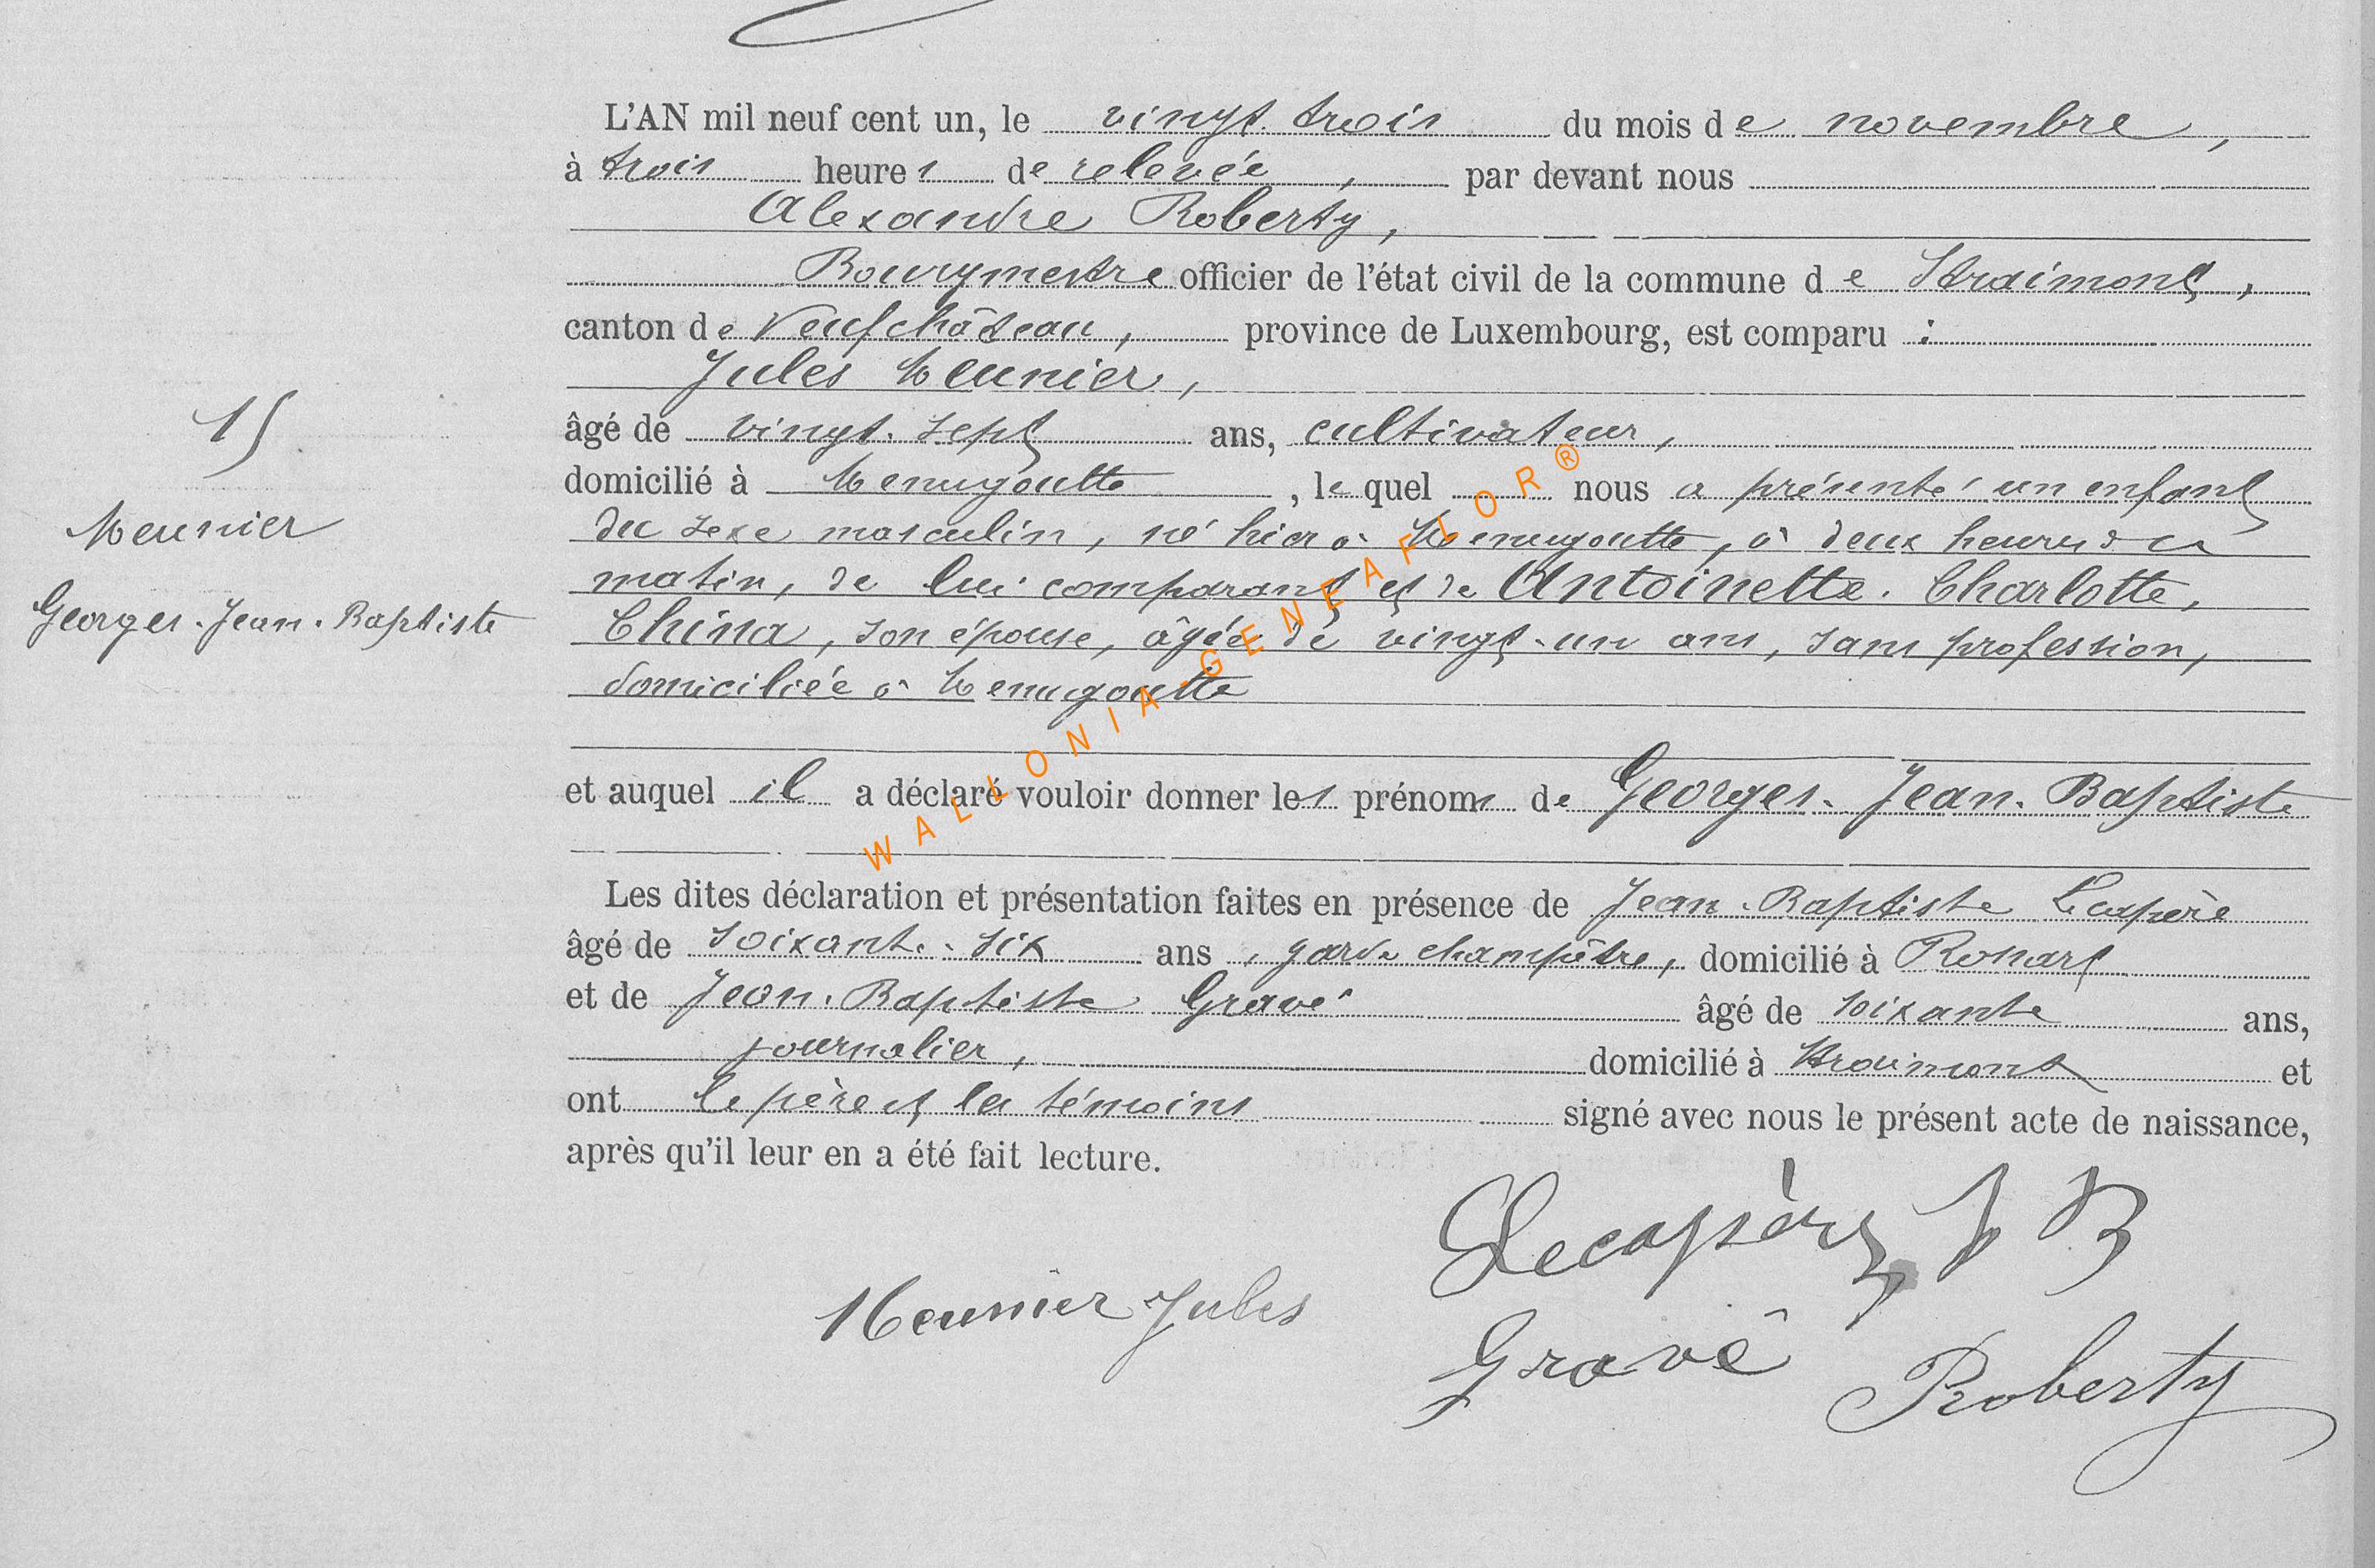 L'AN mil neuf cent un, le vingt trois du mois de novembre,
à trois heures de relevée, par devant nous
Alexandre Roberty,
Bourgmestre officier de l'état civil de la commune de Straimont,
canton de Neufchâteau, province de Luxembourg, est comparu :
Jules Meunier,
âgé de vingt-sept ans, cultivateur,
domicilié à Menugoutte, lequel nous a présenté un enfant
du sexe masculin, né hier à Menugoutte, à deux heures du
matin, de lui comparant et de Antoinette-Charlotte,
China, son épouse, âgée de vingt-un ans, sans profession,
domiciliée à Menugoutte
et auquel il a déclaré vouloir donner les prénoms de Georges-Jean-Baptiste
Les dites déclaration et présentation faites en présence de Jean-Baptiste Lecapère
âgé de soixante-six ans, garde champêtre, domicilié à
et de Jean-Baptiste Gravé âgé de soixante ans,
journalier, domicilié à Straimont et
ont le père et les témoins signé avec nous le présent acte de naissance,
après qu'il leur en a été fait lecture.
15
Meunier
Georges-Jean-Baptiste
Lecapère J B
Meunier Jules
Gravé
Roberty
WALLONIA-GENEAFLOR®